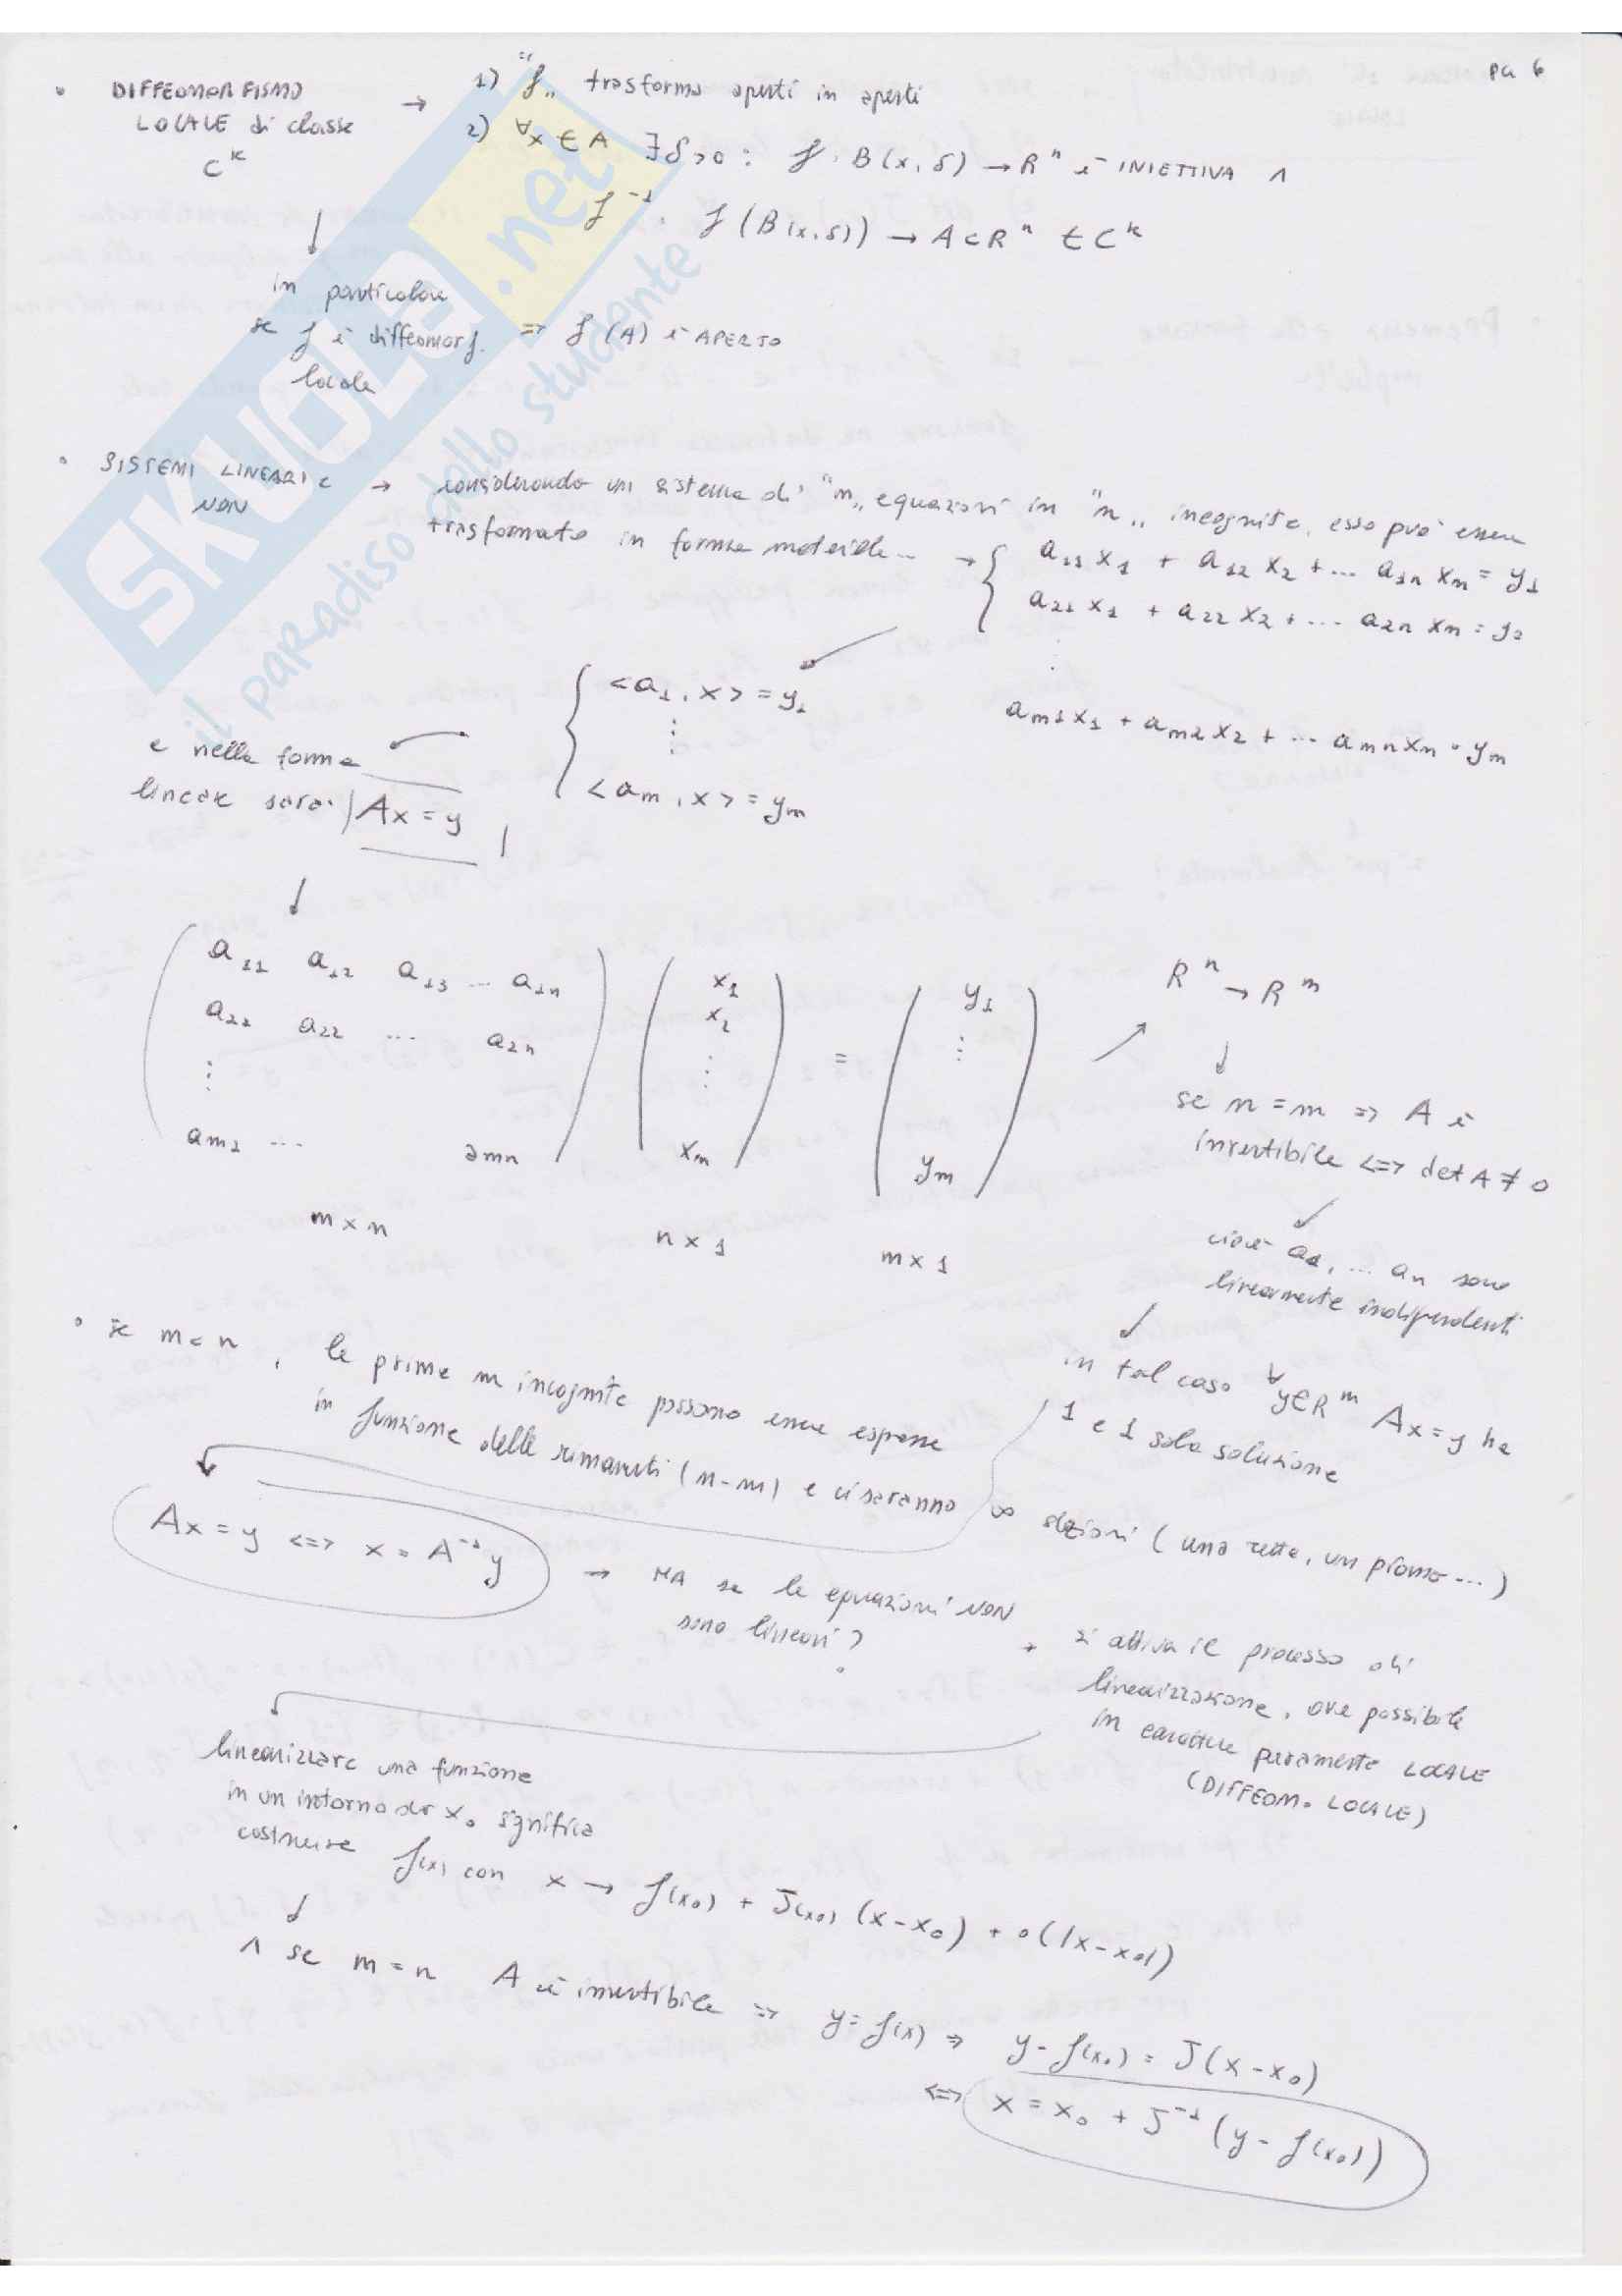 pg 6
• DIFFEOMORFISMO
LOCALE di classe
C^k
→ 1) "f" trasforma aperti in aperti
2) ∀x ∈ A ∃δ>0 : f: B(x,δ) → R^n è INIETTIVA ∧
f^-1: f(B(x,δ)) → A⊂R^n ∈ C^k
↓
in particolare
se f è diffeomorf. => f(A) è APERTO
locale
• SISTEMI LINEARI e
NON
→ considerando un sistema di "m" equazioni in "n" incognite, esso può essere
trasformato in forma matriciale...
→ { a11 x1 + a12 x2 + ... a1n xm = y1
a21 x1 + a22 x2 + ... a2n xn = y2
⋮
am1 x1 + am2 x2 + ... amn xn = ym
{ <a1, x> = y1
⋮
<am, x> = ym
e nella forma
lineare sarà: |Ax = y|
↓
( a11 a12 a13 ... a1n ) ( x1 ) = ( y1 )
a21 a22 ... a2n x2 ⋮
⋮ ⋮
am1 ... amn xm ym
m x n n x 1 m x 1
R^n → R^m
↓
se n = m => A è
invertibile <=> det A ≠ 0
cioè a1, ... an sono
linearmente indipendenti
in tal caso ∀y∈R^m Ax = y ha
1 e 1 sola soluzione
• se m < n, le prime m incognite possono essere espresse
in funzione delle rimanenti (n-m) e ci saranno ∞ slzioni (una retta, un piano...)
Ax = y <=> x = A^-1 y
→ MA se le equazioni NON
sono lineari?
→ si attiva il processo di
linearizzazione, ove possibile
in carattere puramente LOCALE
(DIFFEOM. LOCALE)
linearizzare una funzione
in un intorno di x0 significa
costruire f(x) con x → f(x0) + J(x0) (x-x0) + o(|x-x0|)
↓
∧ se m = n A è invertibile => y = f(x) => y - f(x0) = J(x-x0)
<=> x = x0 + J^-1 (y - f(x0))
SKUOLA.net
il paradiso dello studente